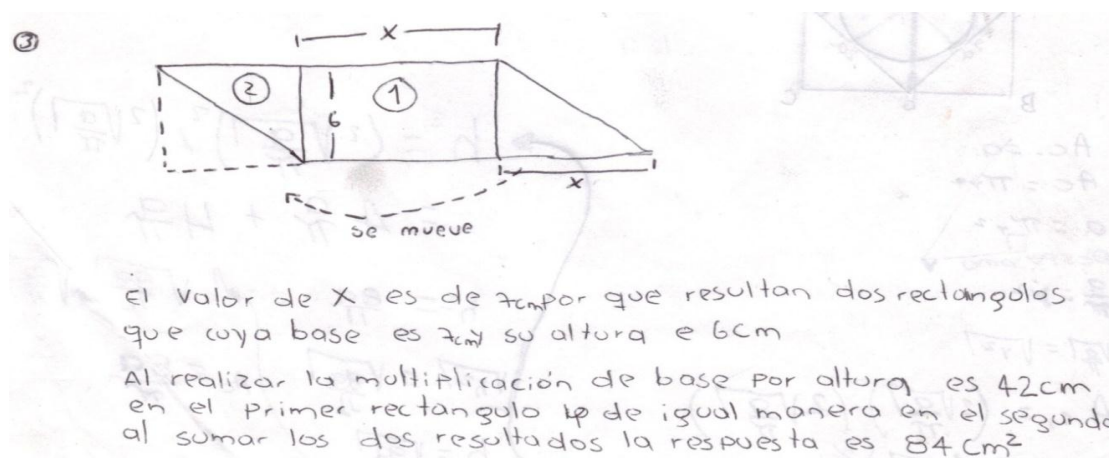 ③
x
②
6
①
x
se mueve
El valor de X es de 7cm por que resultan dos rectangulos
que cuya base es 7cm y su altura e 6cm
Al realizar la multiplicación de base por altura es 42cm
en el primer rectangulo de igual manera en el segundo
al sumar los dos resultados la respuesta es 84 cm²